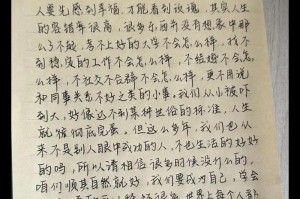 人要先感到幸福，才能看到玫瑰，其实人生
的容错率很高，很多东西并没有想象中那
么了不起，考不上好的大学不会怎么样，找不
到稳定的工作不会怎么样，不结婚不会怎么
样，不社交不合群不会怎么样，更不用说
和同事关系不好之类的小事，我们从小被吓
到大，好像达不到某种世俗的标准，人生
就能彻底完蛋，但这么多年，我们也从
来不是别人眼中成功的人，不也生活的好好
的吗，所以请相信很多时候没什么的，
咱们顺其自然就好，我们要成为自己，学会
世界上每个人都